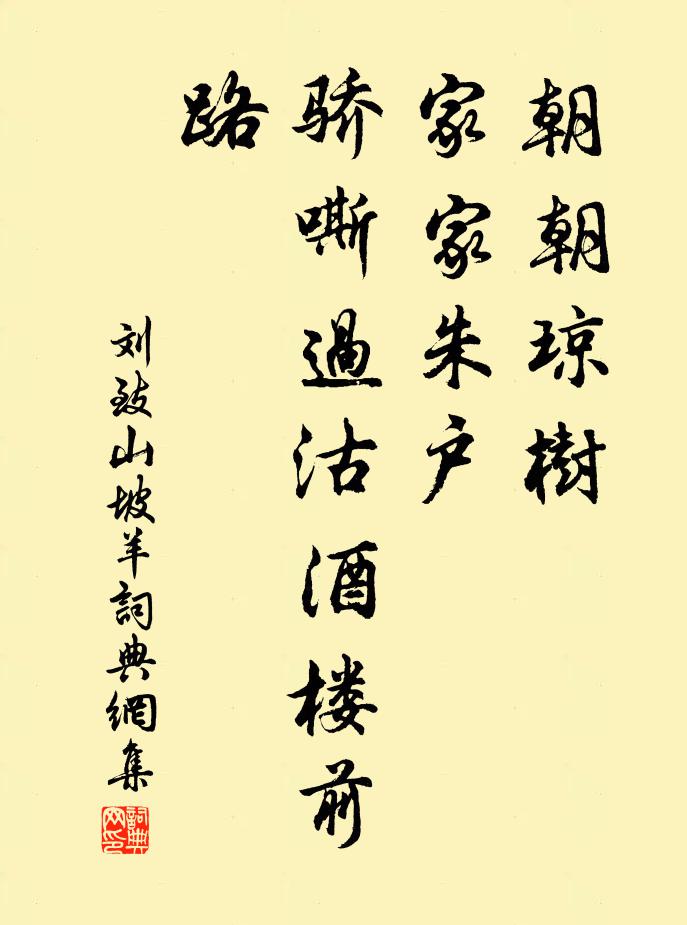 朝朝琼樹
家家朱户
骄嘶過沽酒楼前
路
刘致山坡羊詞典網集
詞典網印